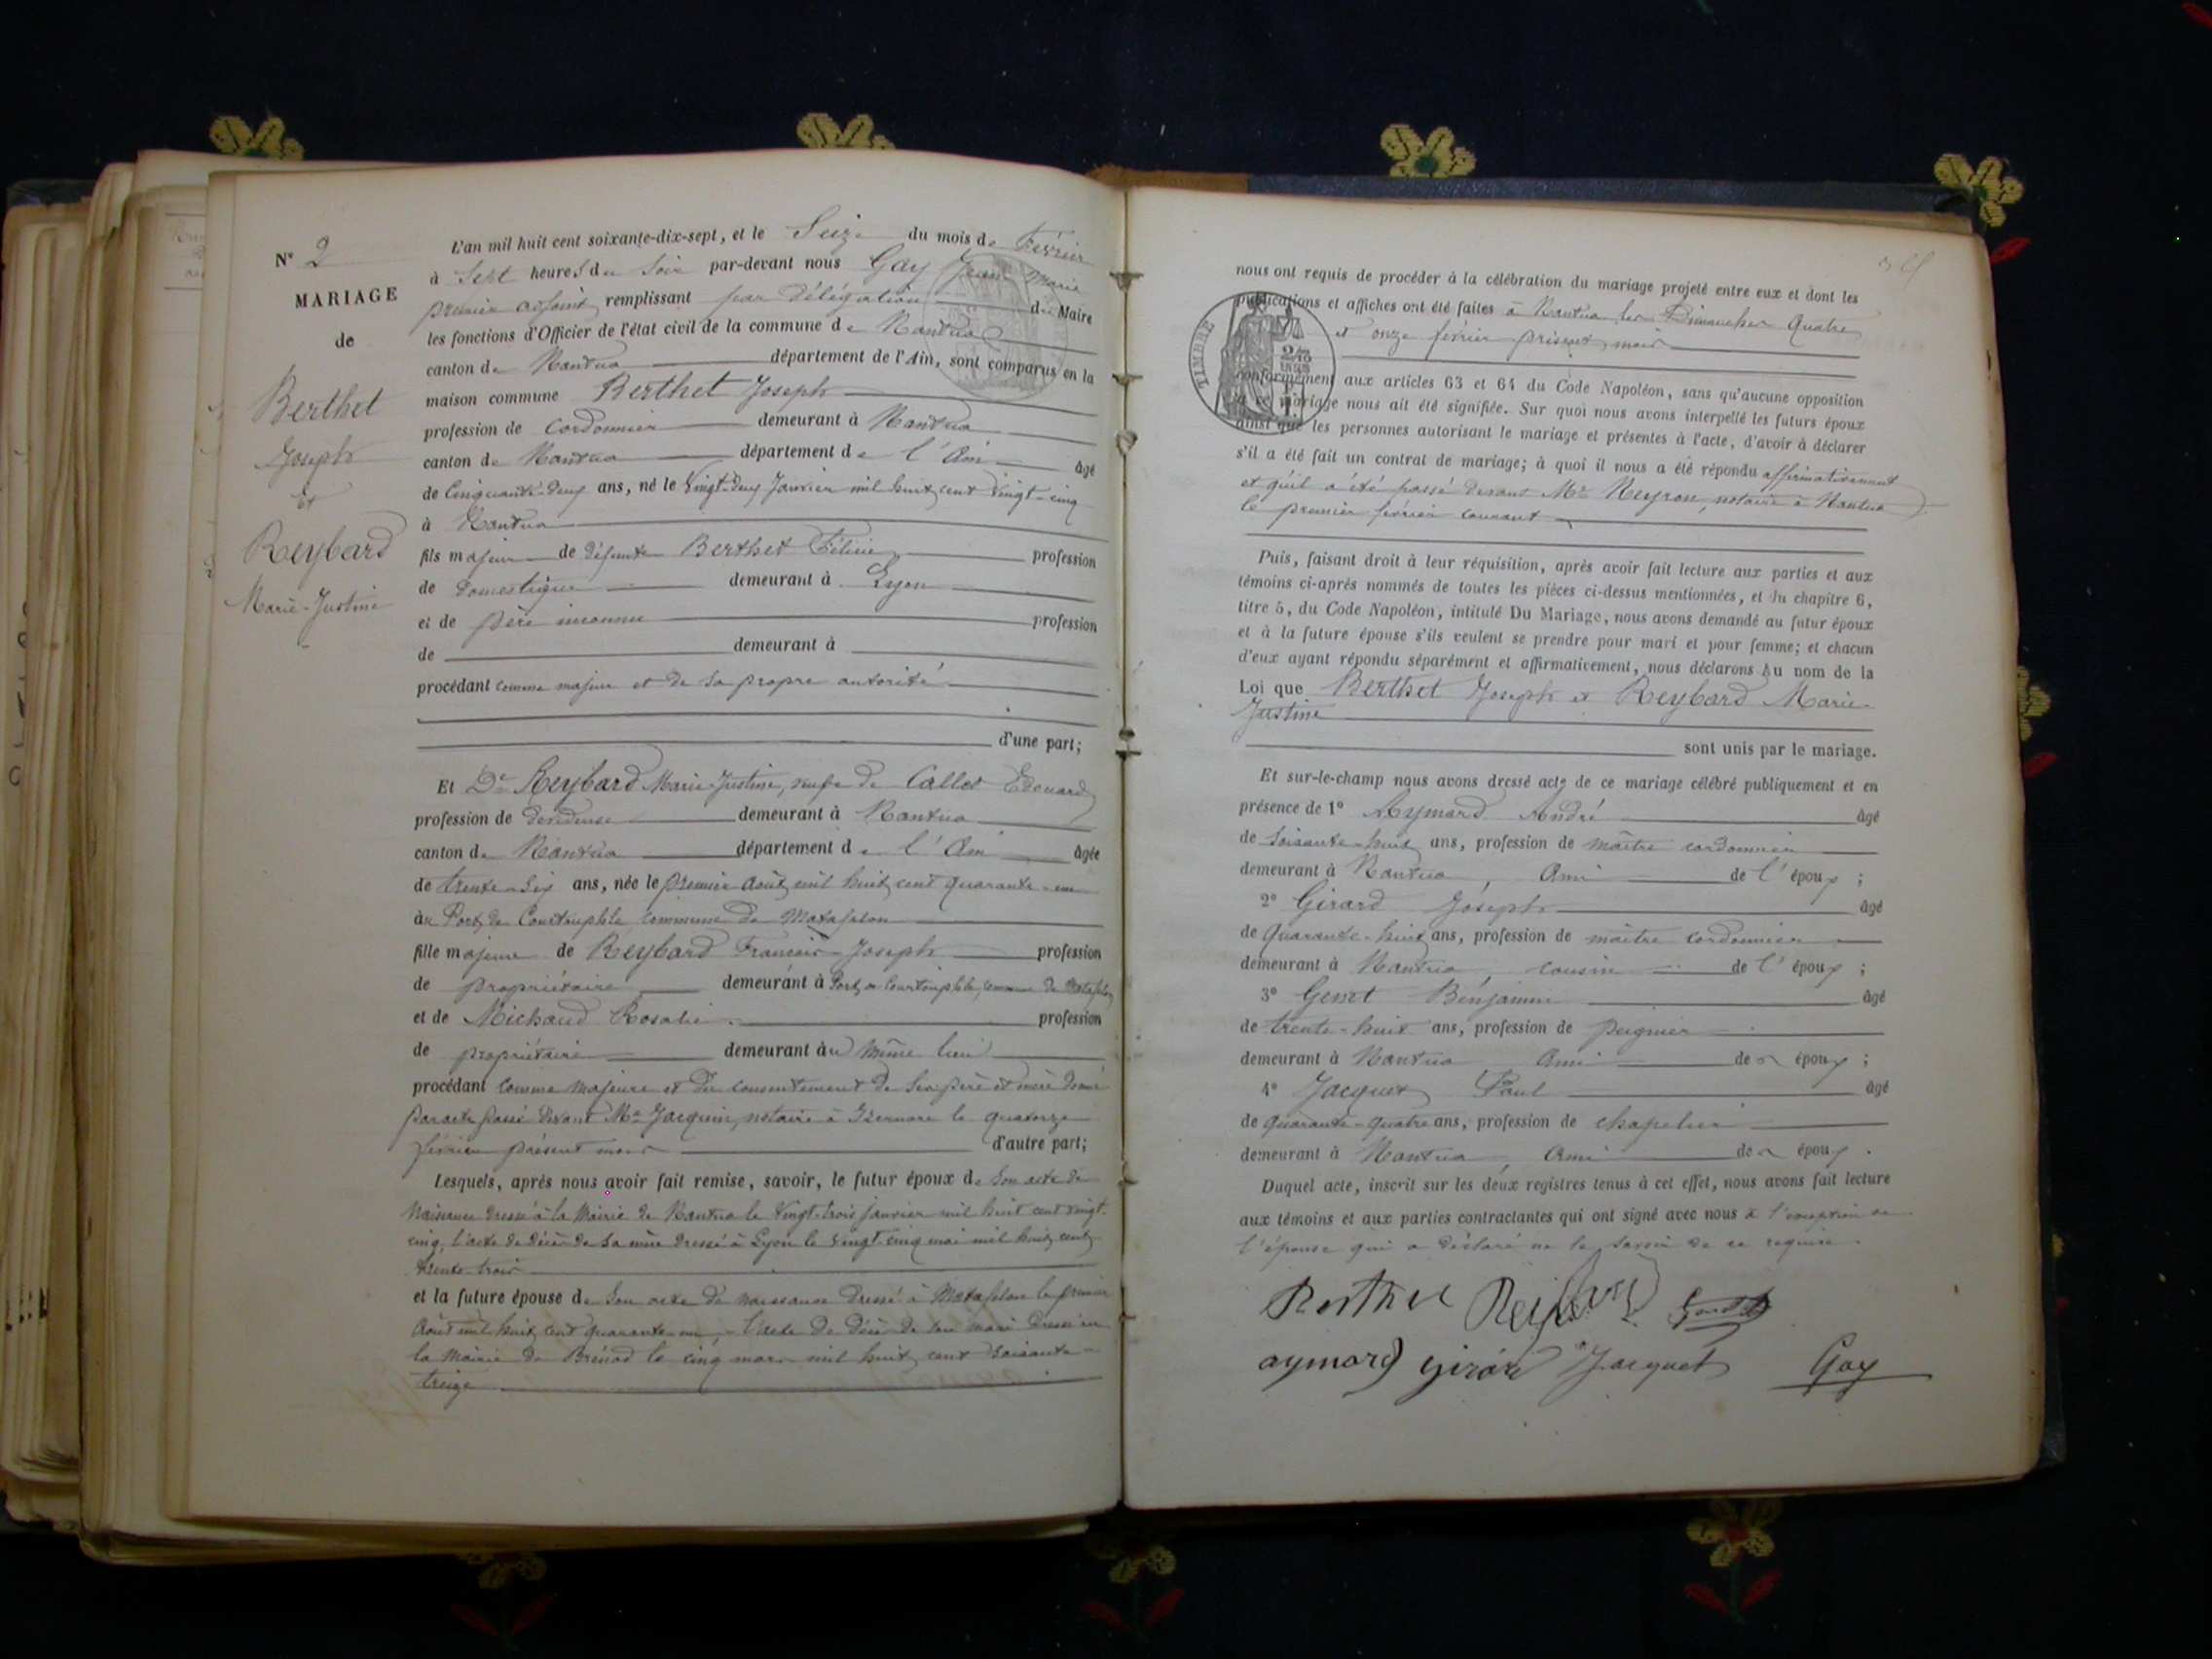 N° 2
MARIAGE
de
Berthet
Joseph
Et
Reybard
Marie-Justine
L'an mil huit cent soixante-dix-sept, et le Seize du mois de Février
à Sept heures du Soir par-devant nous Gay Jean Marie
premier adjoint remplissant par délégation du Maire
les fonctions d'Officier de l'état civil de la commune de Nantua
canton de Nantua département de l'Ain, sont comparus en la
maison commune Berthet Joseph
profession de Cordonnier demeurant à Nantua
canton de Nantua département de l'Ain âgé
de Cinquante-deux ans, né le Vingt-deux Janvier mil huit cent vingt-cinq
à Nantua
fils majeur de défunte Berthet Félicie profession
de domestique demeurant à Lyon
et de père inconnu profession
de demeurant à
procédant comme majeur et de sa propre autorité
d'une part;
Et De Reybard Marie-Justine, veuve de Callet Edouard
profession de devideuse demeurant à Nantua
canton de Nantua département de l'Ain âgée
de trente-six ans, née le premier août mil huit cent quarante-un
au Port de Courtouphle commune de Matafelon
fille majeure de Reybard François-Joseph profession
de propriétaire demeurant à Port de Courtouphle, commune de Matafelon
et de Michaud Rosalie profession
de propriétaire demeurant au même lieu
procédant comme majeure et du consentement de ses père et mère donné
par acte passé devant Me Jacquin, notaire à Izernore le quatorze
février présent mois d'autre part;
Lesquels, après nous avoir fait remise, savoir, le futur époux de son acte de
Naissance dressé à la Mairie de Nantua le vingt-trois janvier mil huit cent vingt-
cinq, l'acte de décès de sa mère dressé à Lyon le vingt-cinq mai mil huit cent
trente-trois
et la future épouse de son acte de naissance dressé à Matafelon le premier
août mil huit cent quarante-un, l'acte de décès de son mari dressé en
la Mairie de Brénod le cinq mars mil huit cent soixante-
treize
nous ont requis de procéder à la célébration du mariage projeté entre eux et dont les
publications et affiches ont été faites à Nantua les Dimanches Quatre
et onze février présent mois
TIMBRE
conformément aux articles 63 et 64 du Code Napoléon, sans qu'aucune opposition
à ce mariage nous ait été signifiée. Sur quoi nous avons interpellé les futurs époux
ainsi que les personnes autorisant le mariage et présentes à l'acte, d'avoir à déclarer
s'il a été fait un contrat de mariage; à quoi il nous a été répondu affirmativement
et qu'il a été passé devant Me Neyron, notaire à Nantua
le premier février courant
Puis, faisant droit à leur réquisition, après avoir fait lecture aux parties et aux
témoins ci-après nommés de toutes les pièces ci-dessus mentionnées, et du chapitre 6,
titre 5, du Code Napoléon, intitulé Du Mariage, nous avons demandé au futur époux
et à la future épouse s'ils veulent se prendre pour mari et pour femme; et chacun
d'eux ayant répondu séparément et affirmativement, nous déclarons au nom de la
Loi que Berthet Joseph et Reybard Marie-
Justine
sont unis par le mariage.
Et sur-le-champ nous avons dressé acte de ce mariage célébré publiquement et en
présence de 1° Aymard André âgé
de soixante-huit ans, profession de maître cordonnier
demeurant à Nantua, Ami de l'époux;
2° Girard Joseph âgé
de quarante-huit ans, profession de maître cordonnier
demeurant à Nantua, cousin de l'époux;
3° Genet Benjamin âgé
de trente-huit ans, profession de peignier
demeurant à Nantua Ami de époux;
4° Jacquet Paul âgé
de quarante-quatre ans, profession de chapelier
demeurant à Nantua, Ami de époux.
Duquel acte, inscrit sur les deux registres tenus à cet effet, nous avons fait lecture
aux témoins et aux parties contractantes qui ont signé avec nous à l'exception de
l'épouse qui a déclaré ne le savoir de ce requise.
Berthet Reybard
aymard Girard Jacquet Gay